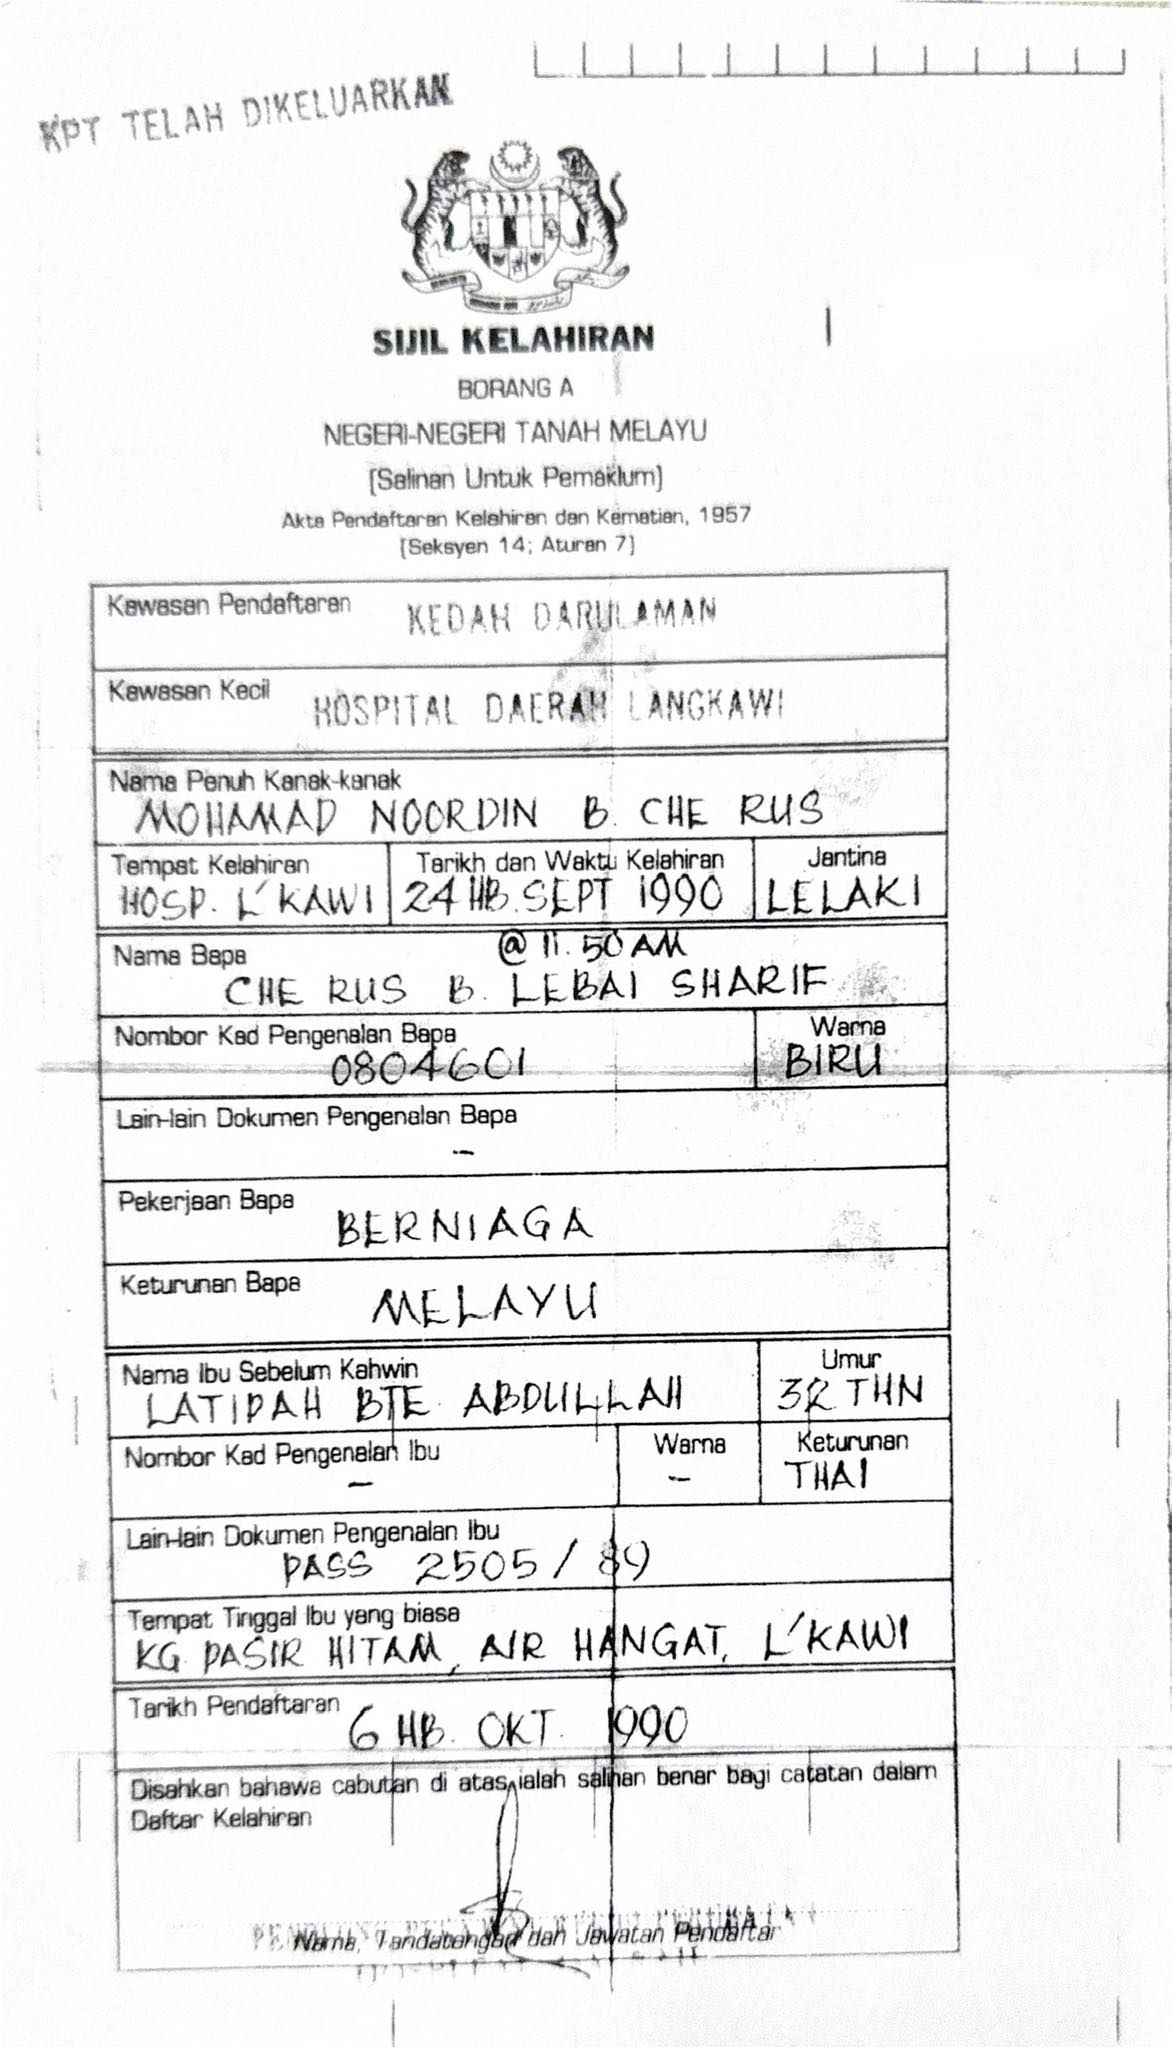 KPT TELAH DIKELUARKAN
SIJIL KELAHIRAN
BORANG A
NEGERI-NEGERI TANAH MELAYU
[Salinan Untuk Pemaklum]
Akta Pendaftaran Kelahiran dan Kematian, 1957
[Seksyen 14; Aturan 7]
Kawasan Pendaftaran KEDAH DARULAMAN
Kawasan Kecil HOSPITAL DAERAH LANGKAWI
Nama Penuh Kanak-kanak
MOHAMAD NOORDIN B. CHE RUS
Tempat Kelahiran Tarikh dan Waktu Kelahiran Jantina
HOSP. L'KAWI 24 HB. SEPT 1990 LELAKI
@ 11.50 AM
Nama Bapa
CHE RUS B. LEBAI SHARIF
Nombor Kad Pengenalan Bapa Warna
0804601 BIRU
Lain-lain Dokumen Pengenalan Bapa
-
Pekerjaan Bapa
BERNIAGA
Keturunan Bapa
MELAYU
Nama Ibu Sebelum Kahwin Umur
LATIPAH BTE ABDULLAH 32 THN
Nombor Kad Pengenalan Ibu Warna Keturunan
- - THAI
Lain-lain Dokumen Pengenalan Ibu
PASS 2505/89
Tempat Tinggal Ibu yang biasa
KG. PASIR HITAM, AIR HANGAT, L'KAWI
Tarikh Pendaftaran
6 HB. OKT. 1990
Disahkan bahawa cabutan di atas ialah salinan benar bagi catatan dalam
Daftar Kelahiran
Nama, Tandatangan dan Jawatan Pendaftar